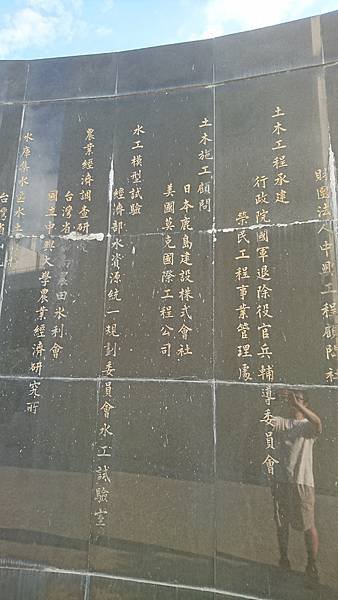 財團法人中興工程顧問社
土木工程承建
行政院國軍退除役官兵輔導委員會
榮民工程事業管理處
土木施工顧問
日本鹿島建設株式會社
美國莫克國際工程公司
水工模型試驗
經濟部水資源統一規劃委員會水工試驗室
農業經濟調查研
台灣省 農田水利會
國立中興大學農業經濟研究所
水庫集水區水土
台灣省
台灣